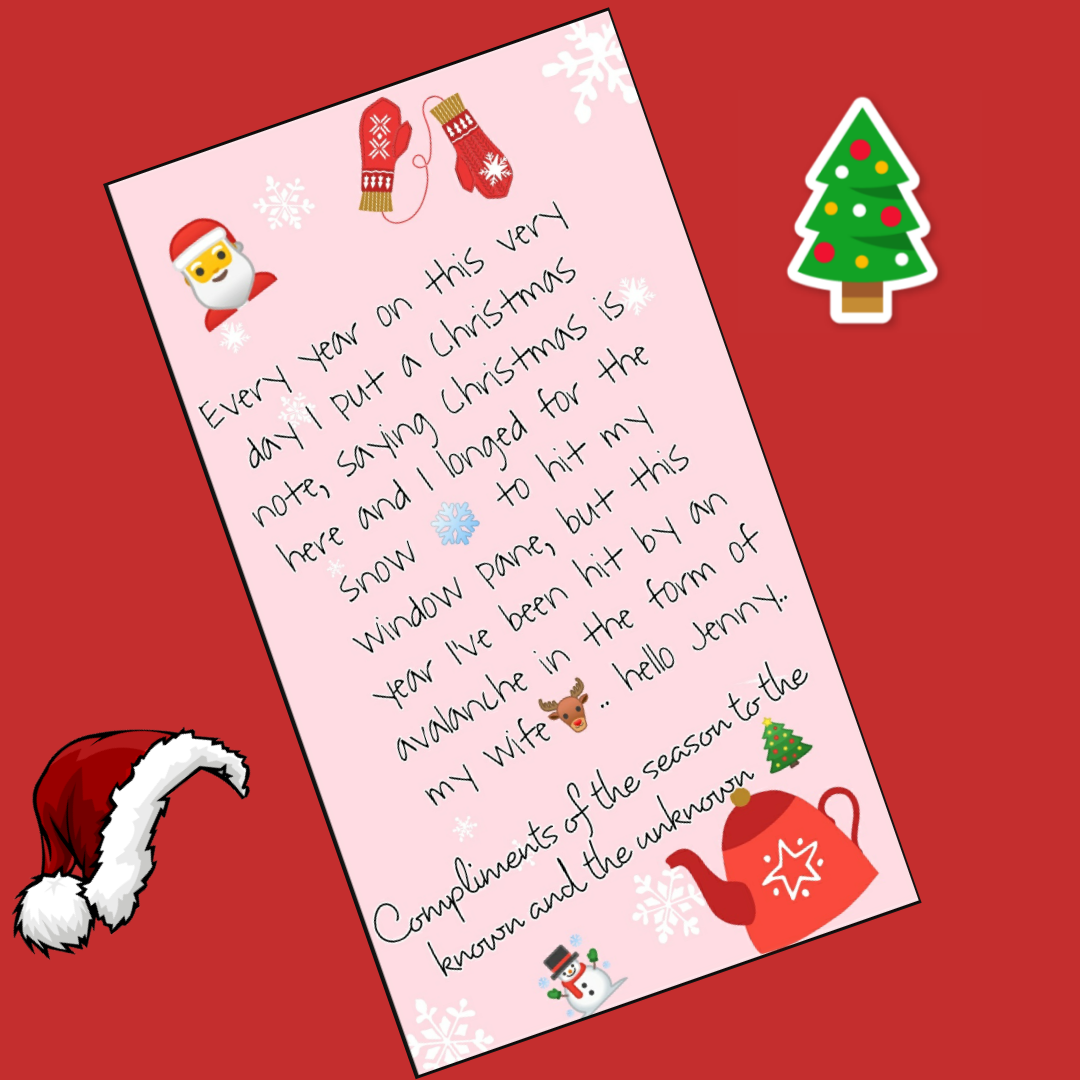 Every year on this very
day I put a Christmas
note, saying Christmas is
here and I longed for the
snow ❄️ to hit my
window pane, but this
year I've been hit by an
avalanche in the form of
my wife🦌.. hello Jenny..
Compliments of the season to the
known and the unknown 🎄